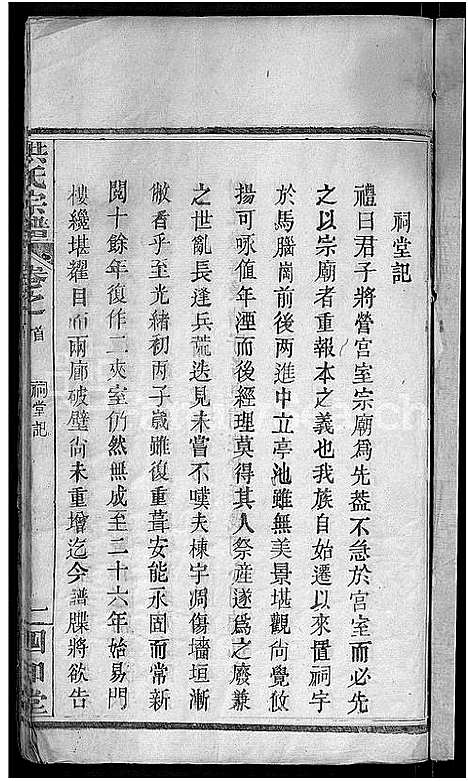 祠堂記
禮曰君子將營宫室宗廟爲先葢不急於宫室而必先
之以宗廟者重報本之義也我族自始遷以來置祠宇
於馬腦崗前後两進中立亭池雖無美景堪觀尙覺攸
揚可啄值年湮而後經理莫得其人祭産遂爲之廢兼
之世亂長逢兵荒迭見未嘗不嘆夫棟宇凋傷墻垣漸
敝看乎至光緒初丙子歳雖復重葺安能永固而常新
閲十餘年復作二夾室仍然無成至二十六年始易門
樓纔堪耀目而兩廊破壁尙未重增迄今譜牒將欲告
洪氏宗譜 卷之首 祠堂記 二 四知堂